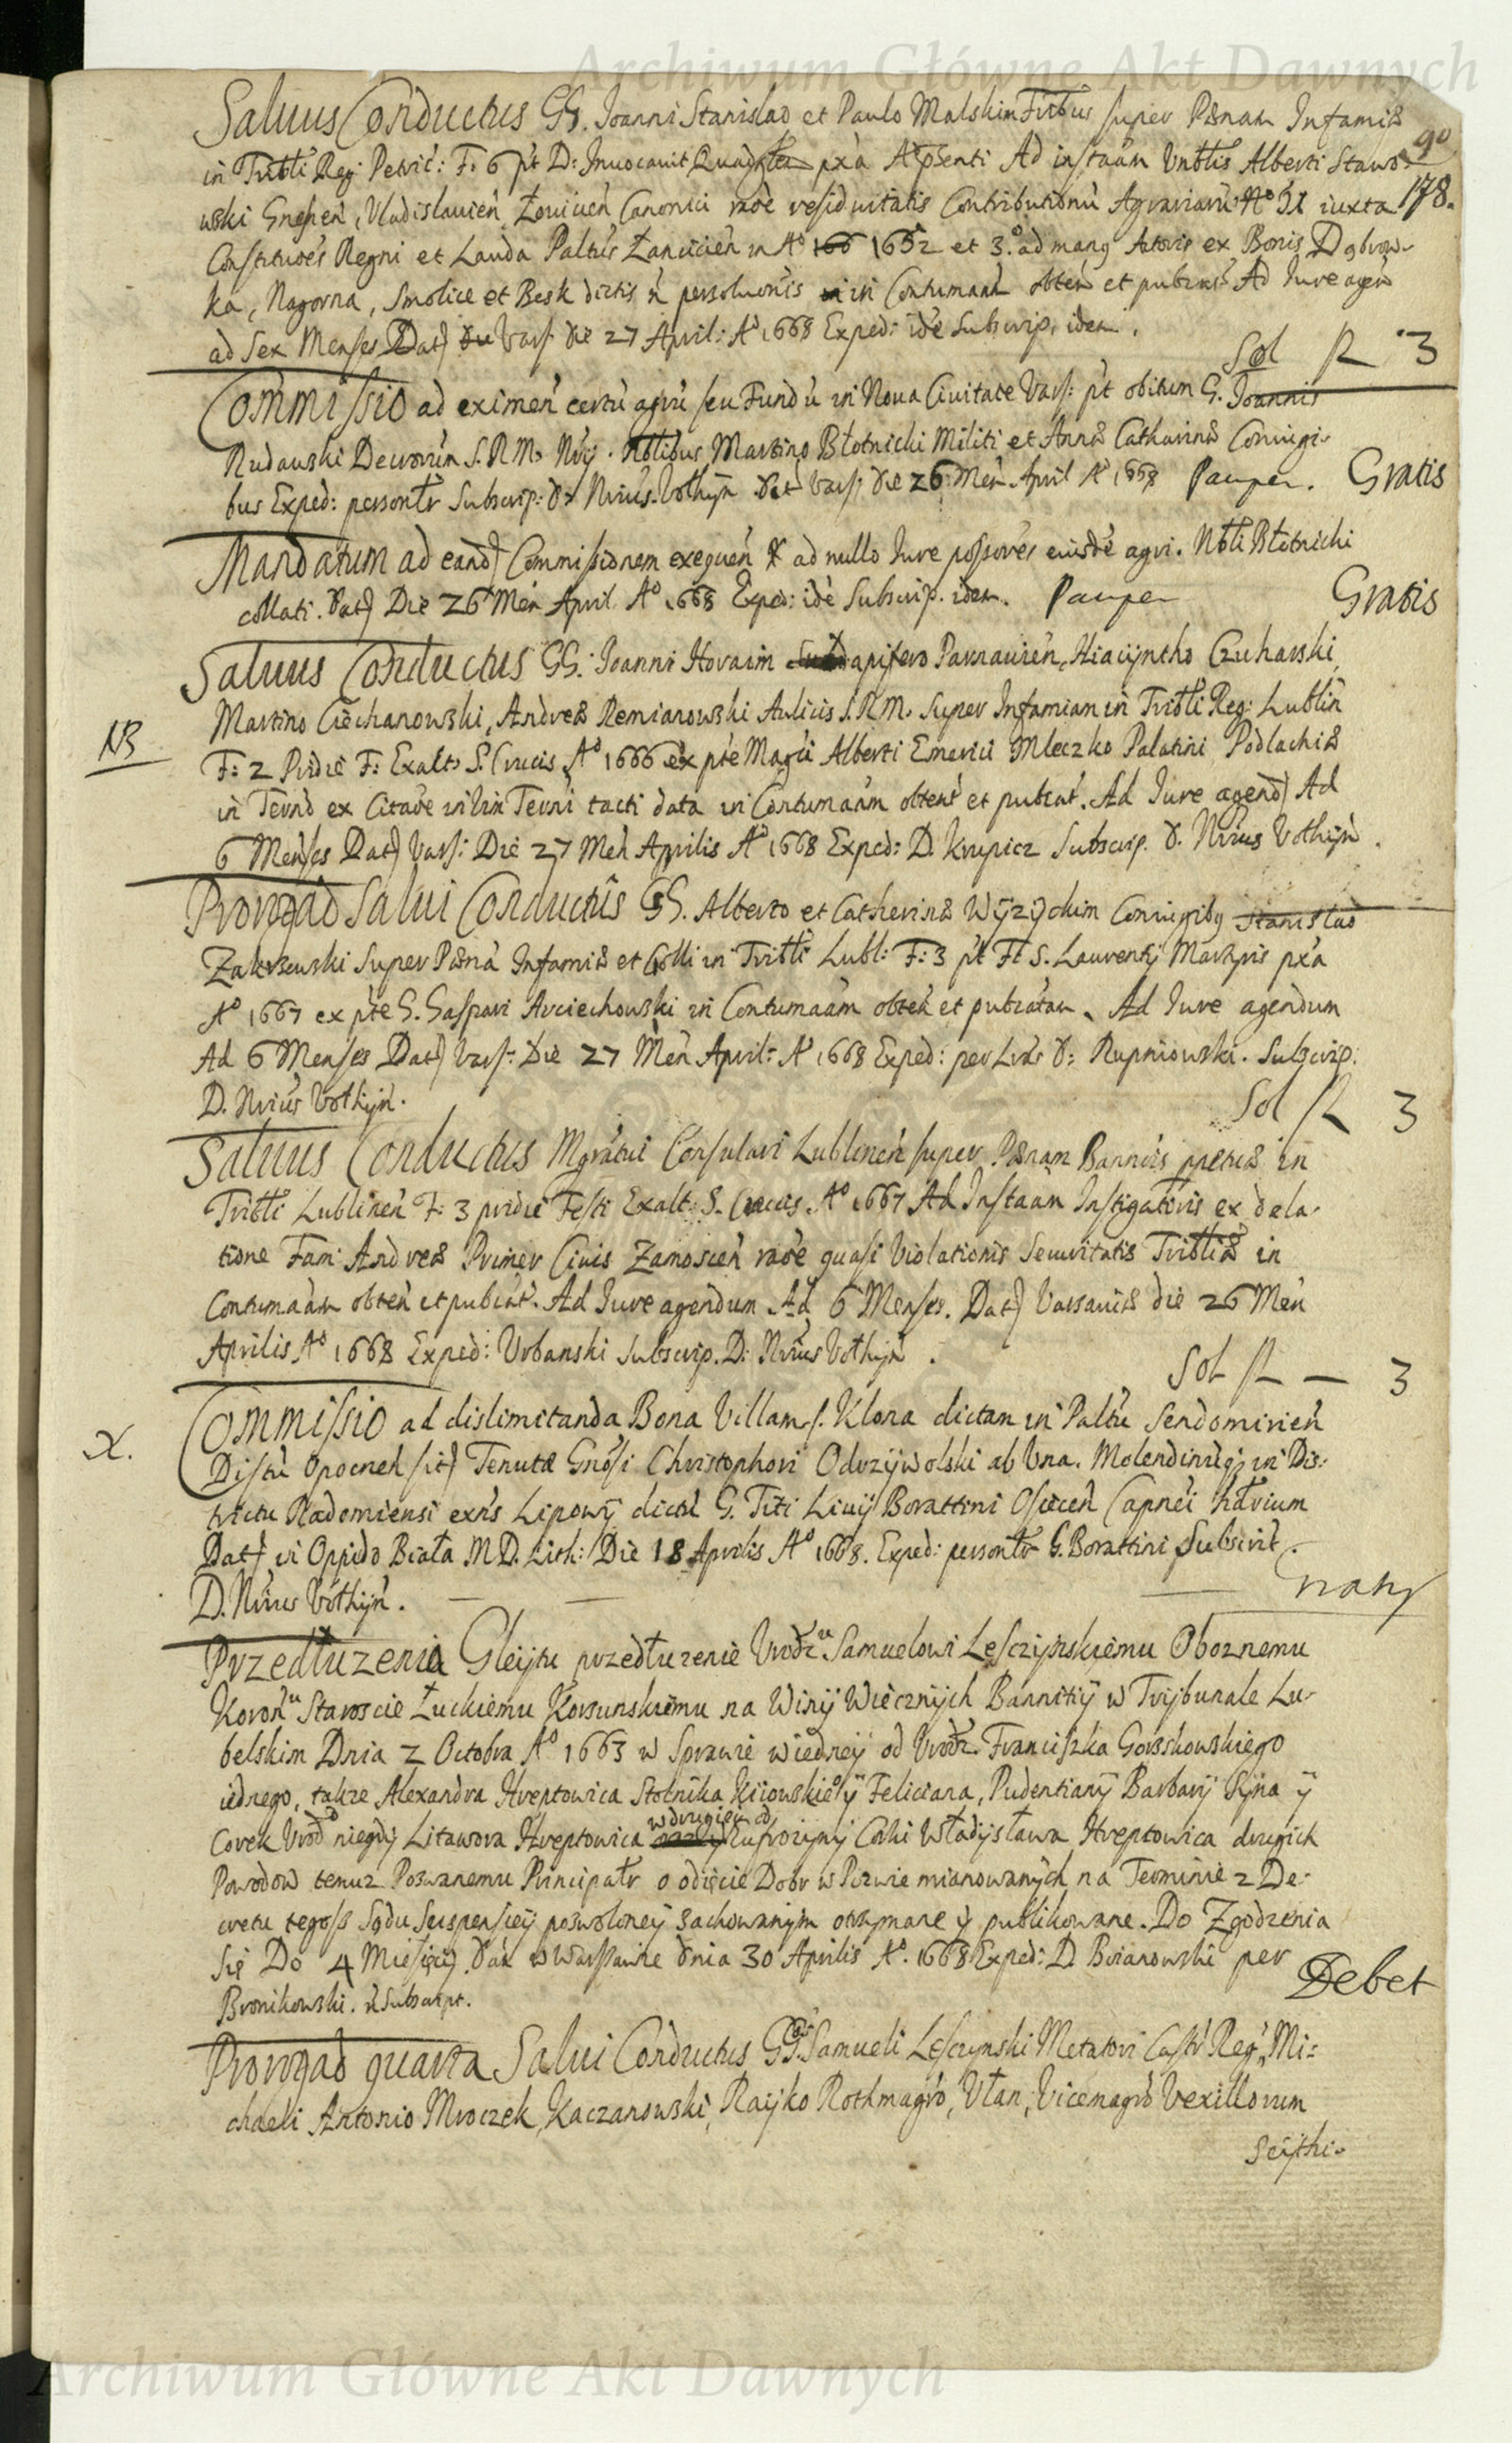 Archiwum Główne Akt Dawnych
Salvus Conductus GG. Joanni Stanislao et Paulo Malskim Frībus super Pænam Infamiæ
in Tribli Reg Petric: F: 6 pt D: Invocavit pxa Ad instaam Alberti Stawo-
90
wski Gnesnen, Vladislavien Canonici raōe residuitatis Contributionū Agrariarū iuxta
178.
Constituoēs Regni et Lauda Paltus Lancicien in Aō 1652 et 3.o ad mang Actoris ex Bonis Dąbrow-
ka, Nagorna, Smolice et Besk dictis n persolvonis in Contumaām obten et publcat Ad Jure agen
ad Sex Menses Dat) Vars: die 27 April: Aō 1668 Exped: idē Subscrip. idem.
Sol R 3
Commissio ad eximen certū agrū seu Fundū in Nova Civitate Vars: pt obitum G. Joannis
Rudawski Decrorum S.R.M. Nrij. Nobilibus Martino Błotnicki Militi et Annæ Catharinæ Coniugi-
bus Exped: personlr Subscrip: D: Nrius Vothijn Dat Vars: die 26 Men April Aō 1668 Pauper. Gratis
Mandatum ad eand) Commissionem exequen ad nullo Jure possores eiusdē agri. Nbli Błotnicki
collati. Dat) Die 26 Men April Aō 1668 Exped: idē Subscrip. idem. Pauper Gratis
Salvus Conductus GG. Joanni Horaim Subdapifero Parnavien, Hiacyntho Czuharski,
Martino Ciechanowski, Andreæ Remianowski Aulicis S.R.M. Super Infamiam in Tribli Reg: Lublin
NB
F: 2 Pridie F: Exalt. S. Crucis Aō 1666 ex pte Magci Alberti Emerici Mleczko Palatini Podlachiæ
in Termo ex Citaōe tacti data in Contumaām obtent et publcat. Ad Jure agend) Ad
6 Menses Dat) Vars: Die 27 Men Aprilis Aō 1668 Exped: D. Krupicz Subscrip. D. Nrius Vothijn.
Prorogaō Salvi Conductûs GG. Alberto et Catherinæ Wijzijckim Coniugibg Stanislao
Zakrzewski Super Pænā Infamiæ et Colli in Tribli Lubl: F: 3 pt Ft S. Laurentij Martyris pxa
Aō 1667 ex pte G. Gaspari Arciechowski in Contumaām obten et publcatam. Ad Jure agendum
Ad 6 Menses Dat) Vars: Die 27 Men April: Aō 1668 Exped: per Lrās D: Rupniowski. Subscrip.
D. Nrius Vothijn.
Sol R 3
Salvus Conductus Mgratui Consulari Lublinen super Pænam Bannois ppetuæ in
Tribli Lublinen F: 3 pridie Festi Exalt: S. Crucis Aō 1667 Ad Instaam Instigatoris ex dela-
tione Fam: Andreæ Primer Civis Zamoscen raōe quasi Violationis Securitatis Triblis in
Contumaām obten et publcat. Ad Jure agendum Ad 6 Menses. Dat) Varsaviæ die 26 Men
Aprilis Aō 1668 Exped: Urbanski Subscrip. D: Nrius Vothijn.
Sol R — 3
X.
Commissio ad dislimitanda Bona Villam s. Klona dictam in Paltū Sendomirien
Distū Opocnen sit) Tenutæ Gnosi Christophori Odrzijwolski ab Una. Molendinūq; in Dis:
trictu Radomiensi exns Lipowij dictū G. Titi Livij Borattini Osiecen Capnei Hdvium
Dat) in Oppido Biała M.D. Lith: Die 18 Aprilis Aō 1668. Exped: personlr G. Borattini Subscrit.
D. Nrius Vothijn.
Przedłuzenia Gleijtu przedłuzenie Urodz. Samuelowi Lesczijnskiemu Oboznemu
Koron Staroscie Łuckiemu Korsunskiemu na Winij Wiecznijch Bannitij w Trijbunale Lu-
belskim Dnia 2 Octobra Aō 1663 w Sprawie wiedneij od Urodz. Franciszka Gorskowskiego
iednego, takze Alexandra Hreptowica Stolnika Kijowskieo ij Feliciana, Pudentianij Barbarij Sijna ij
Corek Urod niegdij Litawora Hreptowica w drugieij od Eufrozijnij Corki Władijsława Hreptowica drugich
Powodow temuz Pozwanemu Principalr o odięcie Dobr w Pozwie mianowanijch na Terminie z De-
cretu tegoss Sądu Suspensieij poswoloneij zachowanijm otrzymane ij publikowane. Do Zgodzenia
się Do 4 Miesięcij. Dan w Warssawie dnia 30 Aprilis Aō. 1668 Exped: D. Boianowski per
Bronikowski. n Subscript.
Debet
Prorogaō quarta Salvi Conductus GG. Samueli Lesczynski Metatori Castr Reg, Mi:
chaeli Antonio Mroczek, Kaczanowski, Raijko Rothmagro, Ułan, Vicemagro Vexillorum
Scijthi-
Archiwum Główne Akt Dawnych